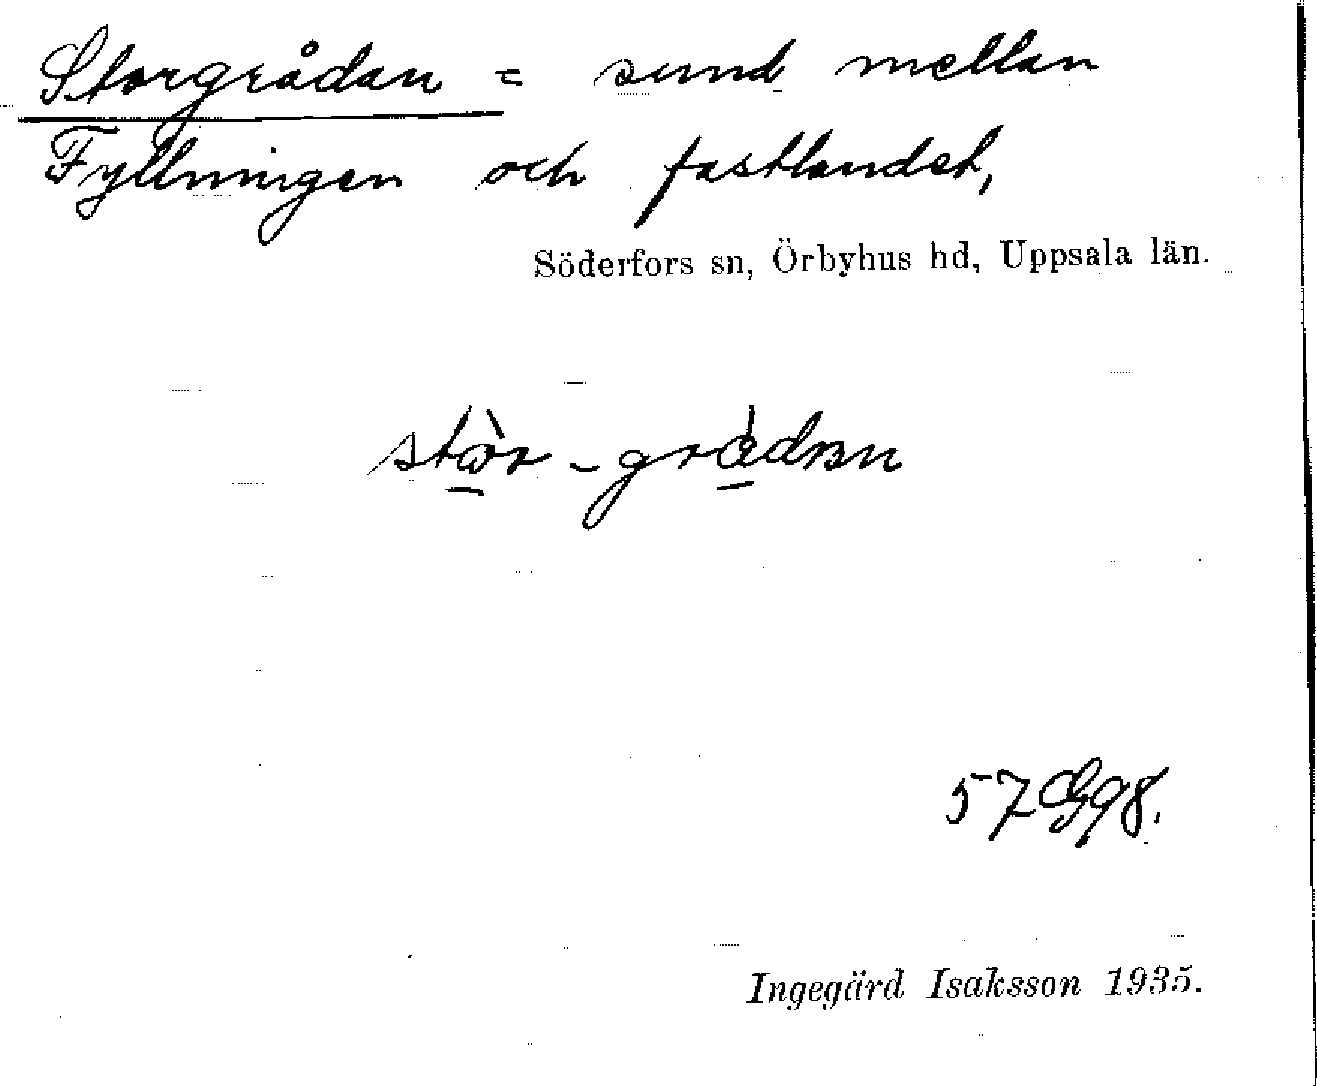 Storgrådan = sund mellan
Fyllningen och fastlandet,
Söderfors sn, Örbyhus hd, Uppsala län.
stòr-grådan
57G98.
Ingegärd Isaksson 1935.